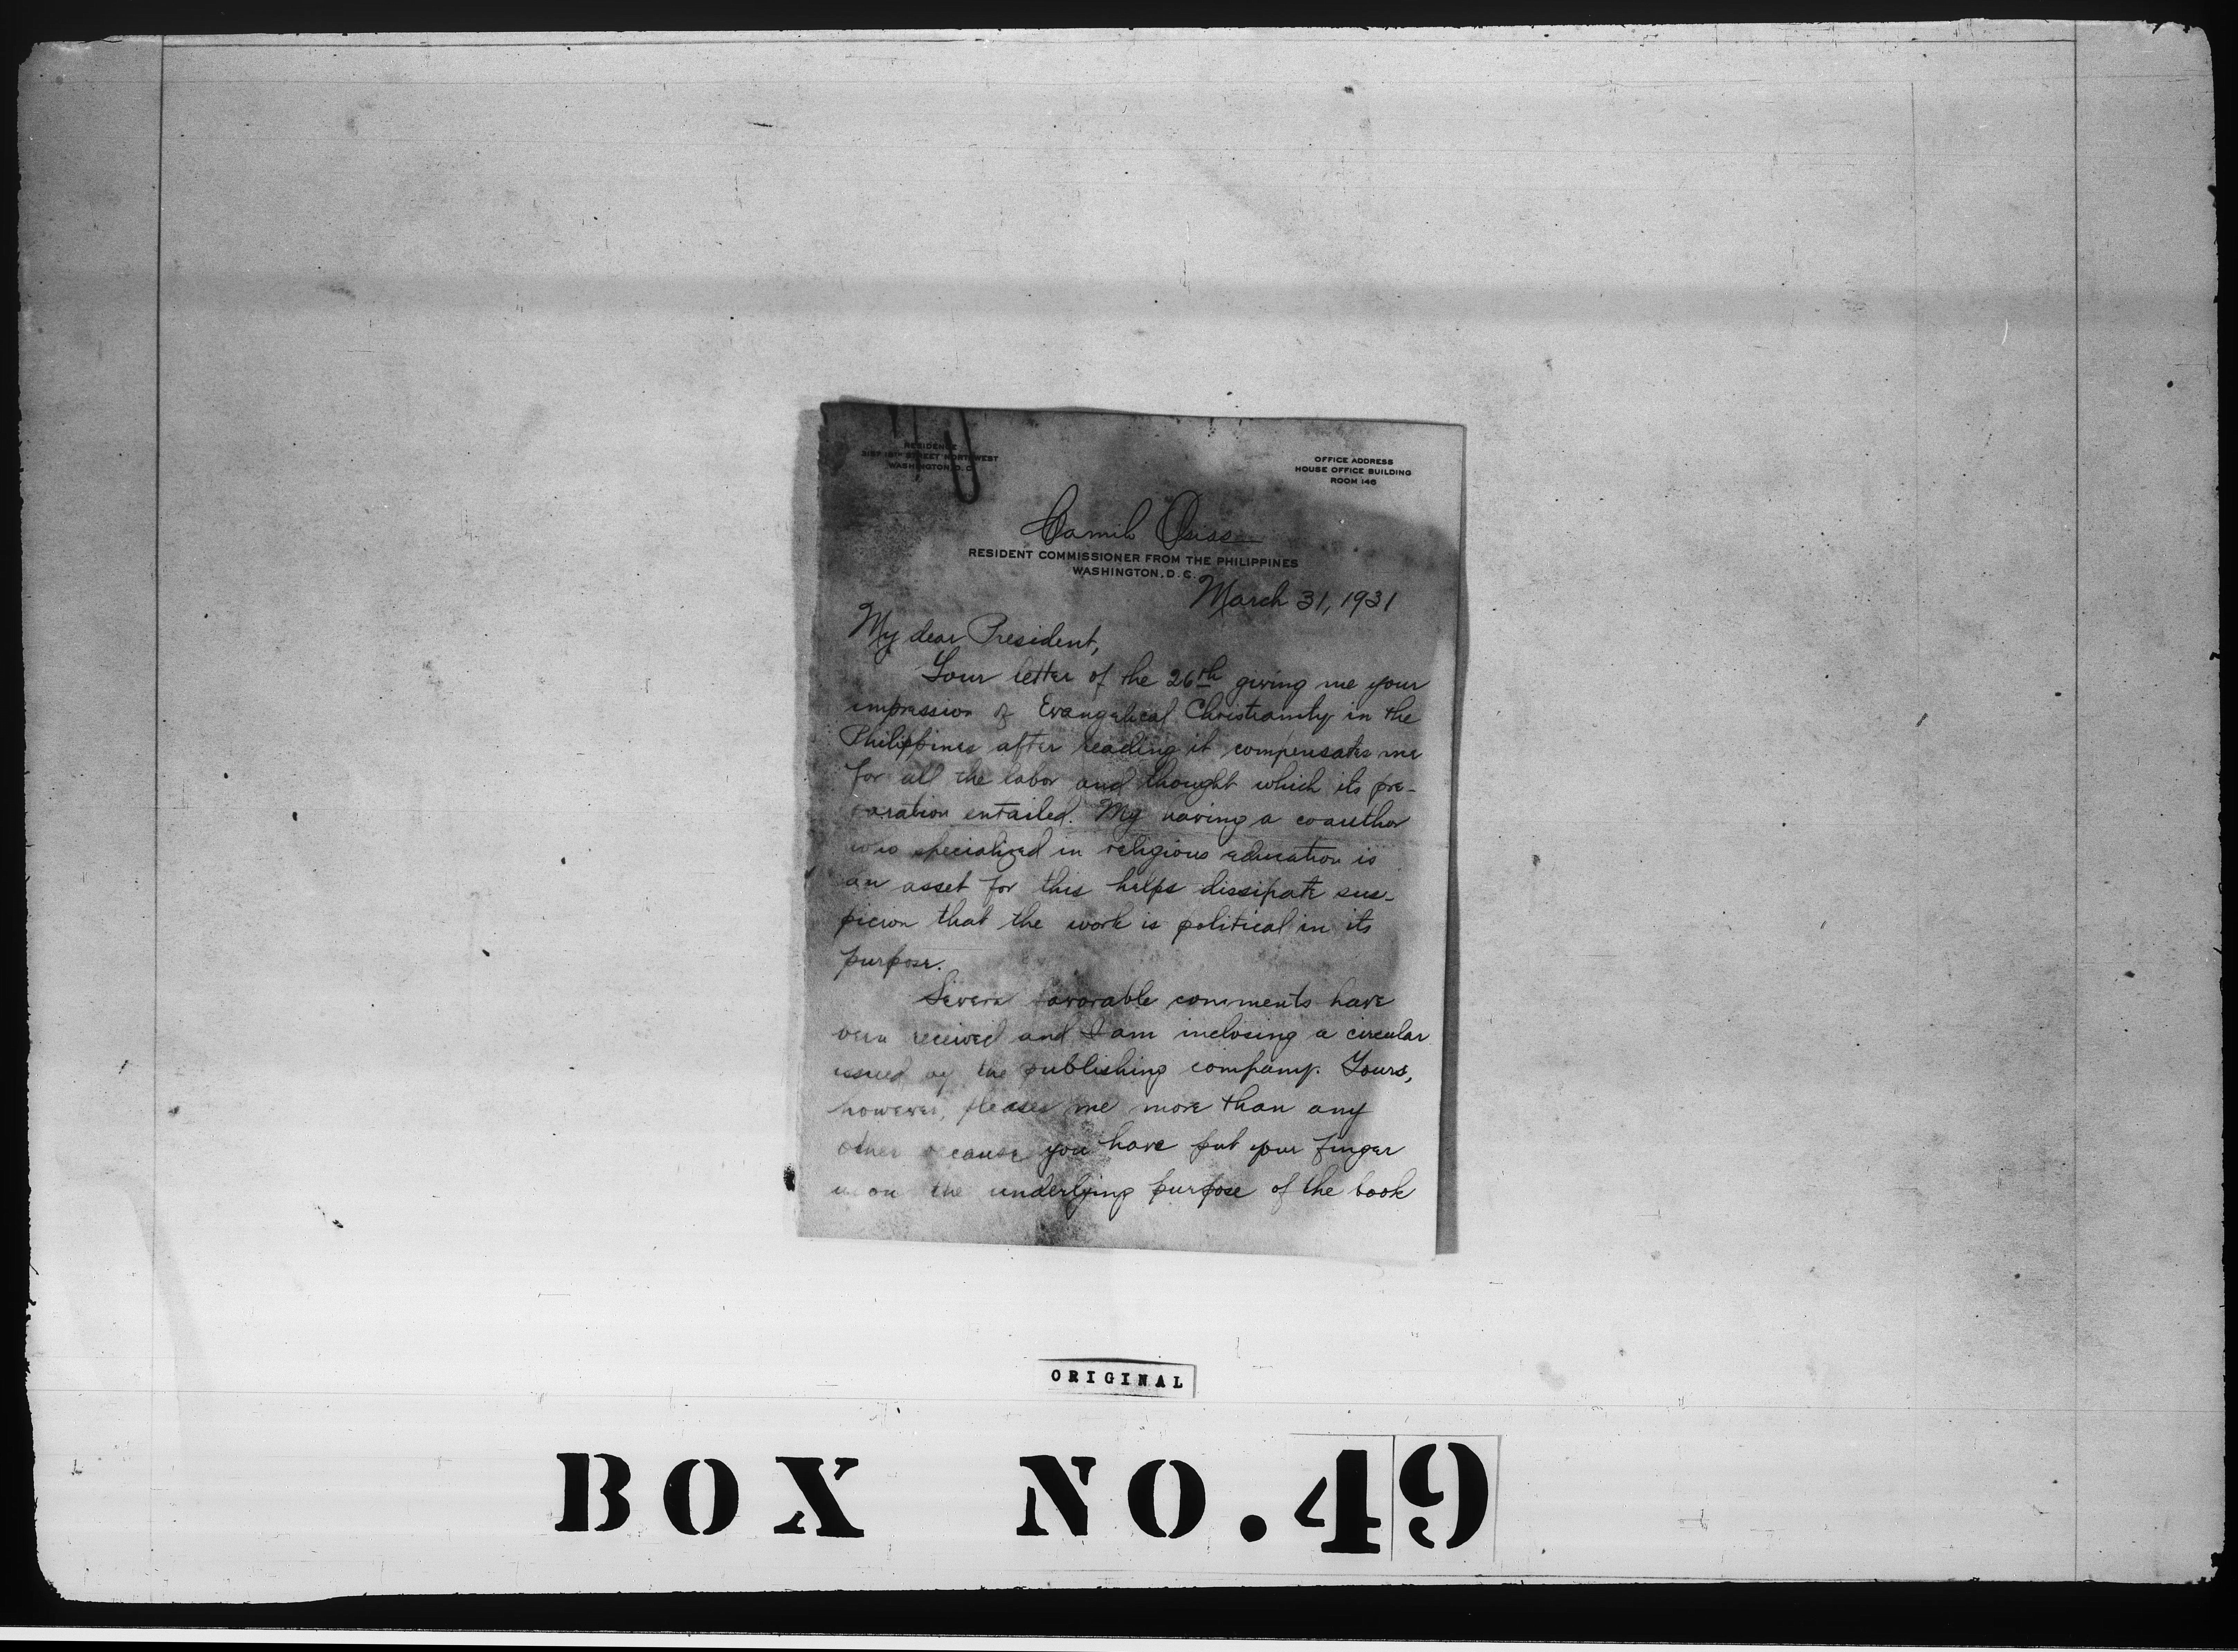 RESIDENCE
STREET NORTHWEST
WASHINGTON, D. C.
OFFICE ADDRESS
HOUSE OFFICE BUILDING
ROOM 146
Camilo Osias
RESIDENT COMMISSIONER FROM THE PHILIPPINES
WASHINGTON, D. C.
March 31, 1931
My dear President,
Your letter of the 26th giving me your
impression of Evangelical Christianity in the
Philippines after reading it compensates me
for all the labor and thought which its pre-
paration entailed. My having a coauthor
who specialized in religious education is
an asset for this helps dissipate sus-
picion that the work is political in its
purpose.
Several favorable comments have
been received and I am inclosing a circular
issued by the publishing company. Yours,
however, pleases me more than any
other because you have put your finger
upon the underlying purpose of the book
ORIGINAL
BOX NO. 49